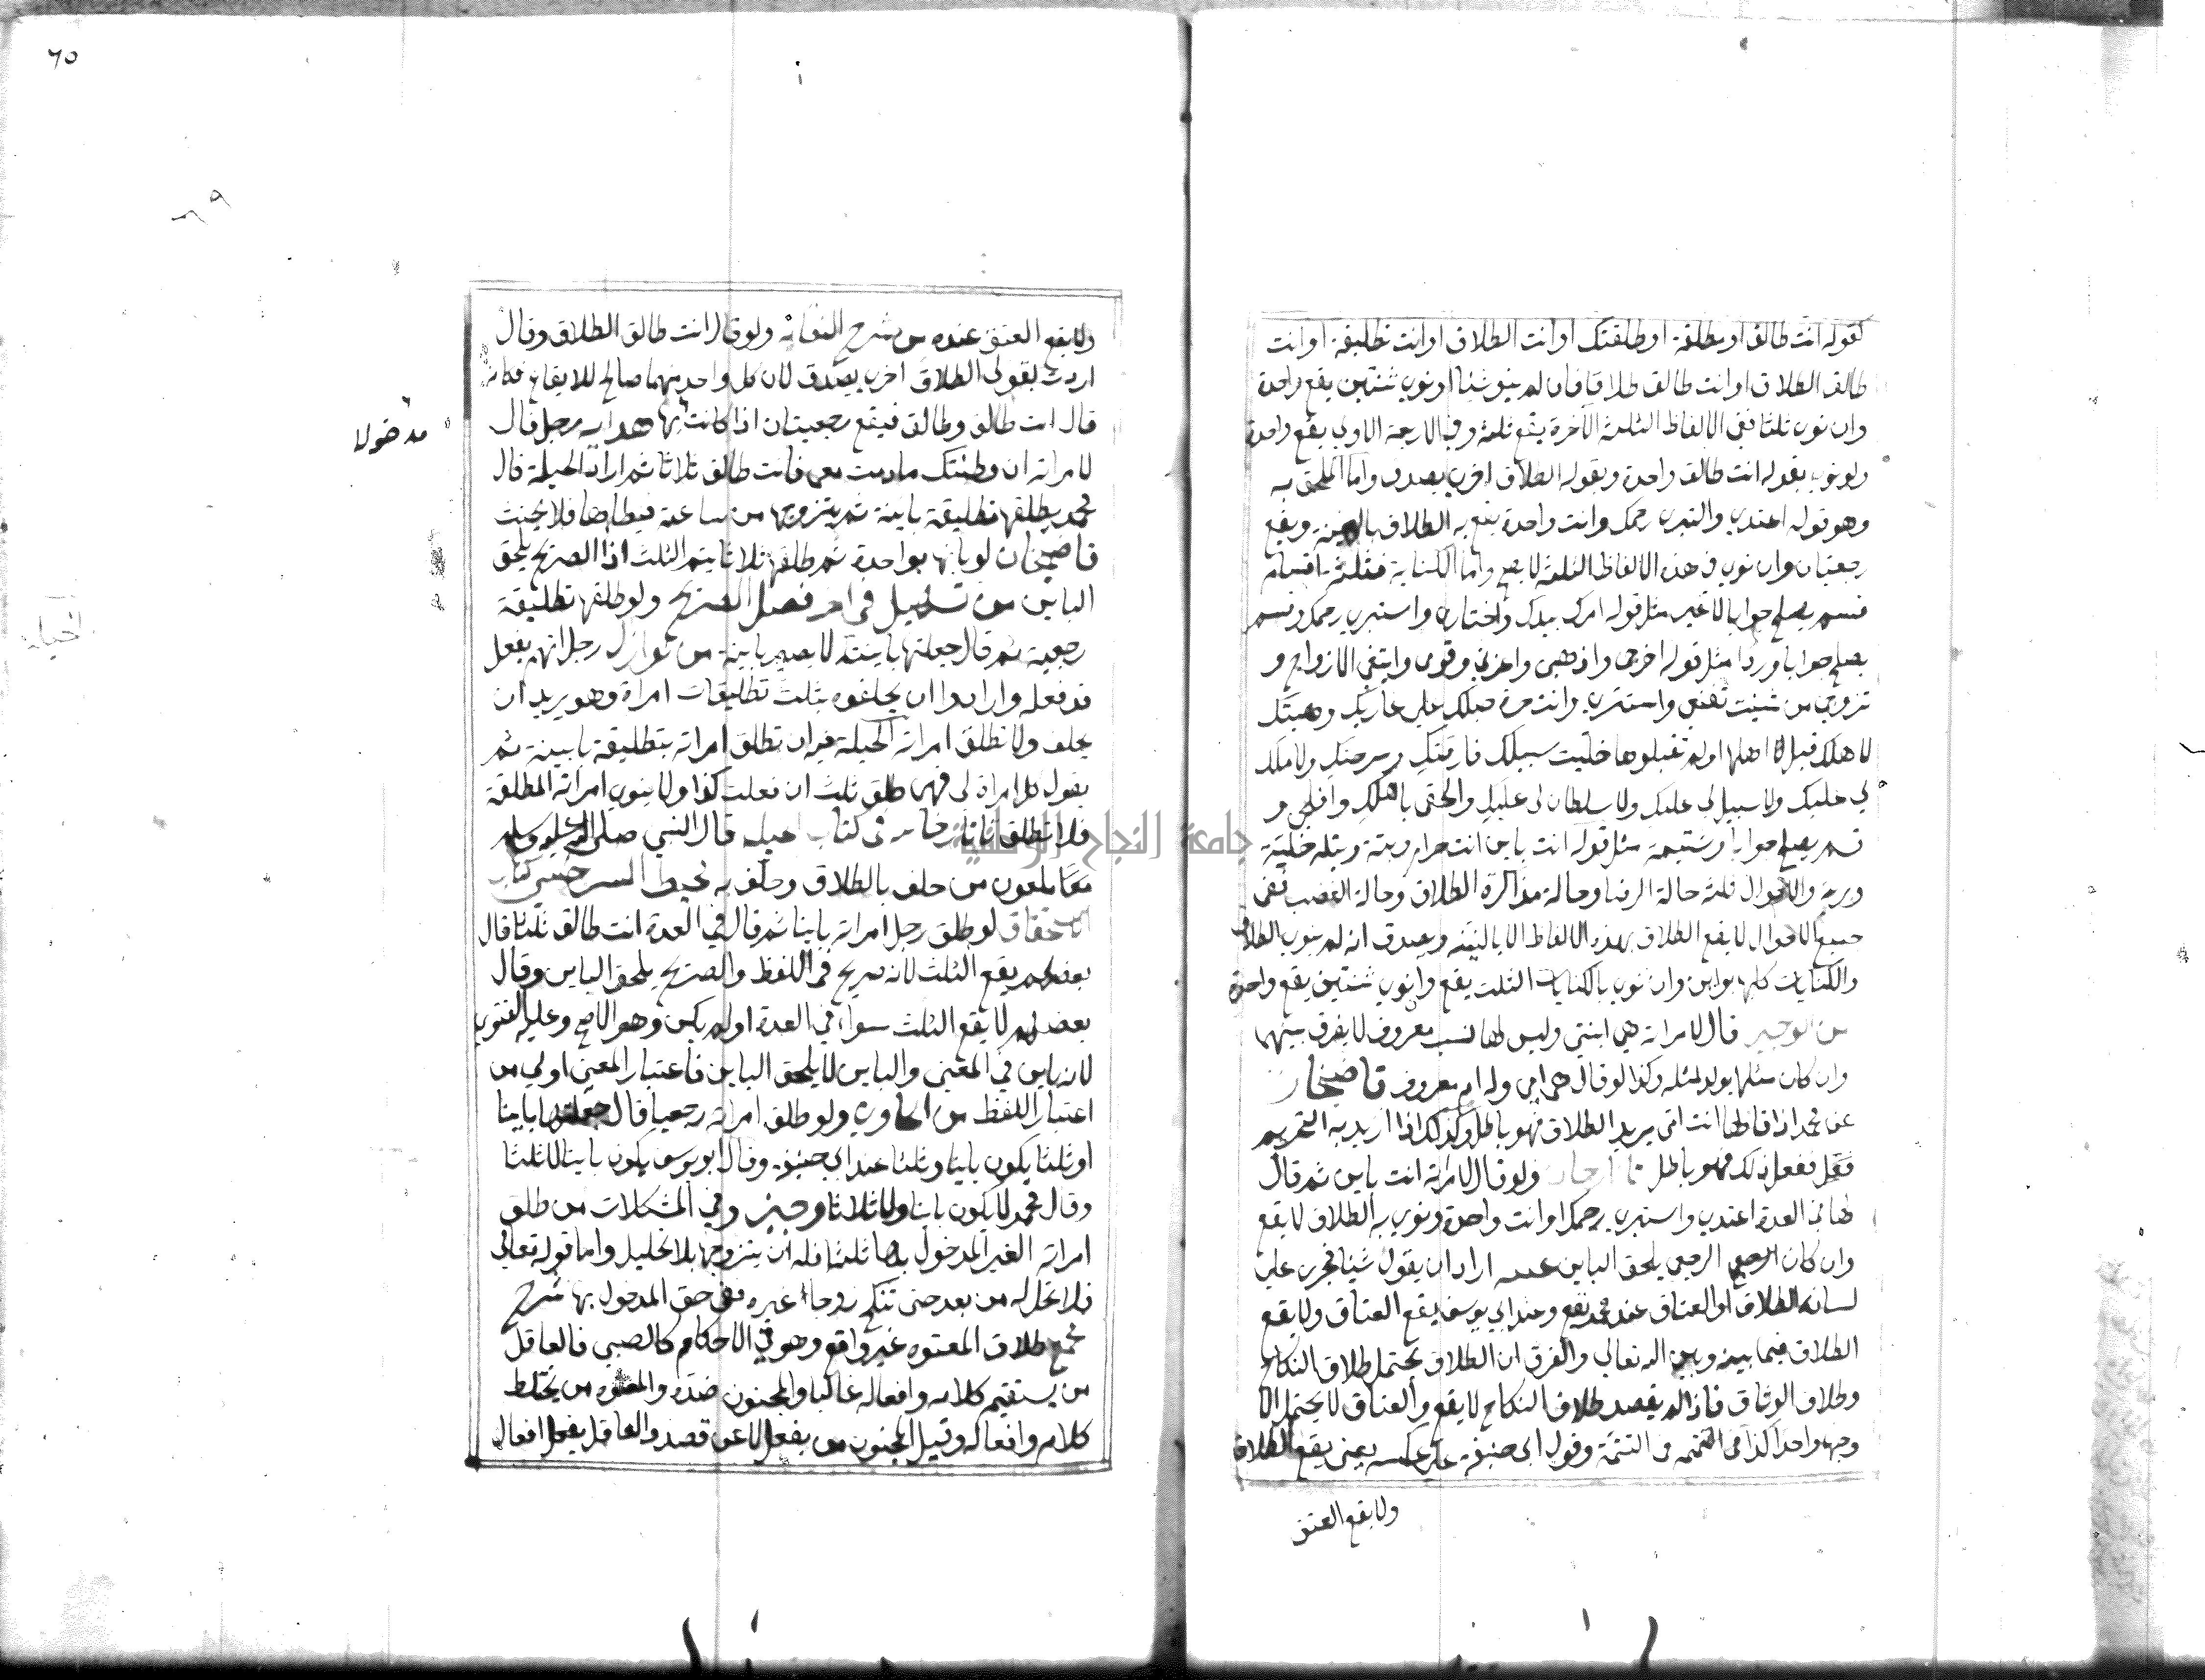 كقوله انت طالق او مطلقة او طلقتك او انت الطلاق او انت تطليقة او انت
طالق الطلاق او انت طالق طلاقا فان لم ينو شئا او نوى ثنتين يقع واحدة
وان نوى ثلثا ففي الالفاظ الثلثة الآخرة يقع ثلثة وفي الاربعة الاولى يقع واحدة
ولو نوى بقوله انت طالق واحدة وبقوله الطلاق اخرى يصدق واما الملحق به
وهو قوله اعتدي واستبرى رحمك وانت واحدة يقع به الطلاق بالنية ويقع
رجعتيان وان نوى في هذه الالفاظ الثلثة لا يصح واما الكناية فثلثة اقسام
قسم يصلح جوابا لا غير مثل قوله امرك بيدك واختاري واستبري رحمك وقسم
يصلح جوابا وردا مثل قوله اخرجى واذهبى واعزبي وقومى وابتغي الازواج و
تزوجى من شئت تقنعى واستترى وانت حرة حبلك على غاربك وهبتك
لاهلك قبل اهلها او لم تقبلوها خليت سبيلك فارقتك وسرحتك ولا ملك
لي عليك ولا سبيل لي عليك ولا سلطان لى عليك والحقى باهلك وافلحى و
قسم يصلح جوابا وشتيمة مثل قوله انت باين انت حرام وبتة وبتلة خلية
وبرية والاحوال ثلثة حالة الرضا وحالة مذاكرة الطلاق وحالة الغضب ففى
جميع الاحوال لا يقع الطلاق بهذه الالفاظ الا بالنية ويصدق انه لم ينوى الطلاق
والكنايات كلها بواين وان نوى بالكنايات الثلث يقع وانوى ثنتين يقع واحدة
من الوجيز قال لامراته هي ابنتي وليس لها نسب معروف لا يفرق بينهما
وان كان مثلها يولد لمثله وكذا لو قال هى امى وله ام معروف قاضيخان
عن محمد اذا قال لها انت امى يريد الطلاق فهو باطل وكذلك اذا اريد به التحريم
فقل فعل ذلك فهو باطل ولو قال لامراته انت باين ثم قال
لها في العدة اعتدي واستبري رحمك او انت واحدة ونوى به الطلاق لا يقع
وان كان الرجعى يلحق الباين اراد ان يقول شيئا فجرى على
لسانه الطلاق او العتاق عند محمد يقع وعند ابي يوسف يقع العتاق ولا يقع
الطلاق فيما بينه وبين الله تعالى والفرق ان الطلاق يحتمل طلاق النكاح
وطلاق الوثاق فاذا لم يقصد طلاق النكاح لا يقع والعتاق لا يحتمل الا
وجها واحدا كذا فى التتمة وقول ابى حنيفة على عكسه يعنى يقع الطلاق
ولا يقع العتق
٦٥
ولا يقع العتق عنده من شرح النقاية ولو قال انت طالق الطلاق وقال
اردت بقولى الطلاق اخرى يصدق لان كل واحد منهما صالح للايقاع فكانه
قال انت طالق وطالق فيقع رجعيتان اذا كانت بها هدايه رجل قال
مدخولا
لامراته ان وطئتك مادمت معى فانت طالق ثلاثا ثم اراد الحيلة قال
محمد يطلقها تطليقة باينة ثم يتزوجها من ساعته فيطاها فلا يحنث
قاضيخان لو بانها بواحدة ثم طلقها ثلاثا يتم الثلث اذا الصريح يلحق
الباين من تسهيل فى اخر فصل الصريح ولو طلقها تطليقة
رجعية ثم قال جعلتها باينة لا يصير باينة من نوازل رجل اتهم بفعل
قد فعله وارادوا ان يحلفوه بثلث تطليقات امراة وهو يريد ان
يحلف ولا تطلق امراته الحيلة فيه ان تطلق امراته بتطليقة باينة ثم
يقول كل امراة لى فهى طلق ثلث ان فعلت كذا ولا ينوي امراته المطلقة
فلا تطلق فى كتاب الحيل قال النبي صلى الله عليه وسلم
ملعون من حلف بالطلاق وحلف به محيط السرخسى كتاب
لو طلق رجل امراته باينا ثم قال في العدة انت طالق ثلثا قال
بعضهم يقع الثلث لانه صريح فى اللفظ والصريح يلحق الباين وقال
بعضهم لا يقع الثلث سواء في العدة او لم يكن وهو الاصح وعليه الفتوى
لانه باين في المعنى والباين لا يلحق الباين فاعتبار المعنى اولى من
اعتبار اللفظ من الحاوى ولو طلق امراته رجعيا قال جعلتها باينا
او ثلثا يكون باينا وثلثا عند ابى حنيفة وقال ابو يوسف يكون باينا لا ثلثا
وقال محمد لا يكون باينا ولا ثلاثا وجيز وفي المشكلات من طلق
امراته الغير المدخول بها ثلثا فله ان يتزوجها بلا تحليل واما قوله تعالى
فلا تحل له من بعد حتى تنكح زوجا غيره ففى حق المدخول بها شرح
مجمع طلاق المعتوه غير واقع وهو في الاحكام كالصبى فالعاقل
من يستقيم كلامه وافعاله غالبا والمجنون ضده والمعتوه من يختلط
كلامه وافعاله وقيل المجنون من يفعل لا عن قصد والعاقل يفعل افعال
جامعة النجاح الوطنية